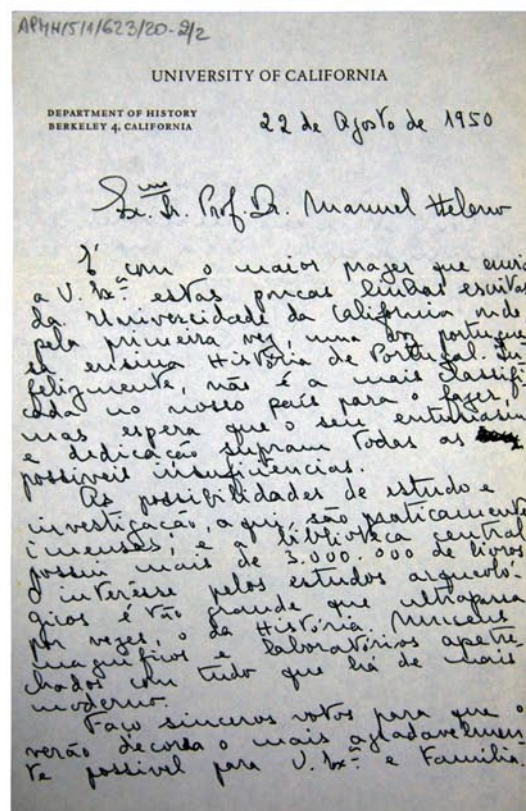 APMH/5/1/623/20-2/2
UNIVERSITY OF CALIFORNIA
DEPARTMENT OF HISTORY
BERKELEY 4, CALIFORNIA
22 de Agosto de 1950
Ex.mo Sr. Prof. Dr. Manuel Heleno
É com o maior prazer que envio
a V. Ex.ª estas poucas linhas escritas
da Universidade da California onde
pela primeira vez, uma voz portugue-
sa ensina História de Portugal. In-
felizmente, não é a mais classifi-
cada no nosso país para o fazer,
mas espera que o seu entusiasmo
e dedicação supram todas as
possíveis insuficiências.
As possibilidades de estudo e
investigação, aqui, são praticamente
imensas, e a biblioteca central
possui mais de 3.000.000 de livros
O interêsse pelos estudos arqueoló-
gicos é tão grande que ultrapassa
por vezes, o da História. Museus
magníficos e laboratórios apetre-
chados com tudo que há de mais
moderno.
Faço sinceros votos para que o
verão decorra o mais agradavelmen
te possivel para V. Ex.ª e Familia.